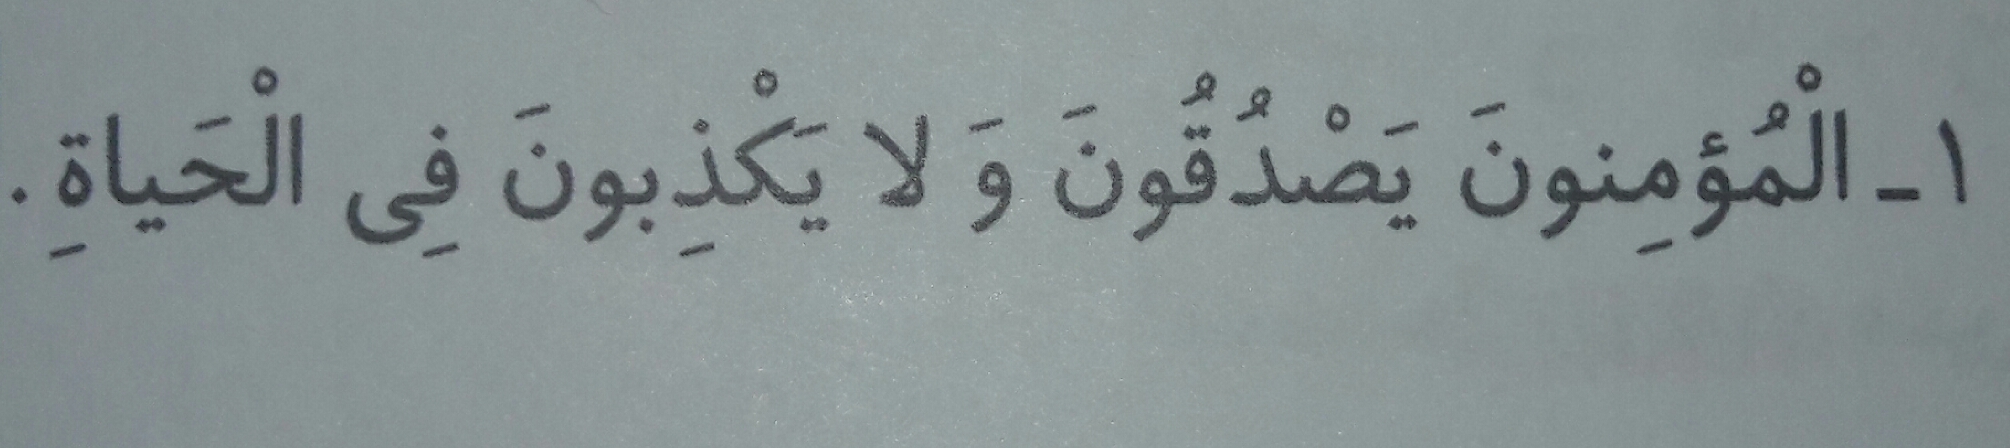 ١ـ الْمُؤمِنونَ يَصْدُقُونَ وَ لا يَكْذِبونَ فِی الْحَياةِ .